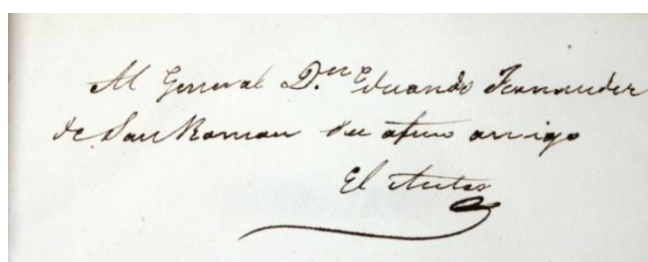 Al General D.ⁿ Eduardo Fernandez
de San Roman su afmo amigo
El Autor